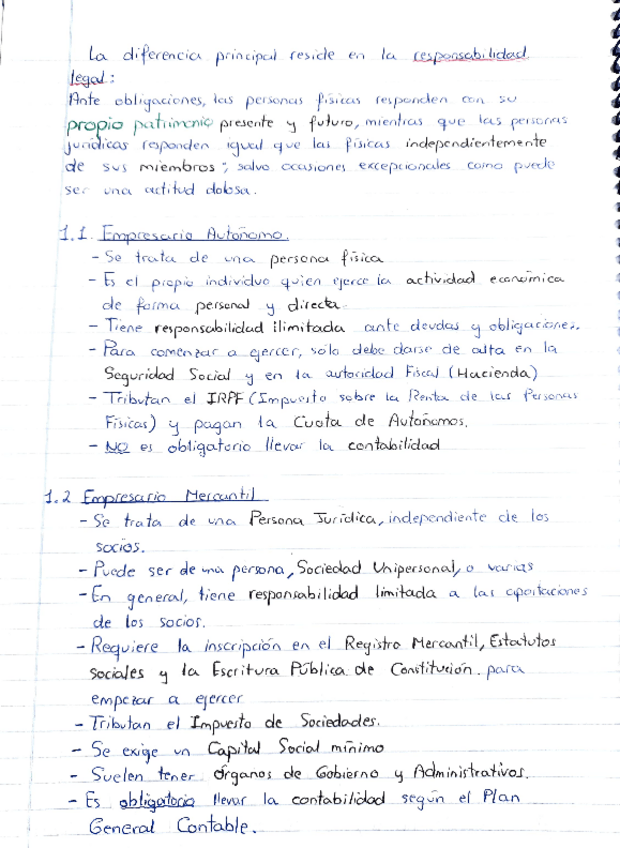 La diferencia principal reside en la responsabilidad
legal:
Ante obligaciones, las personas físicas responden con su
propio patrimonio presente y futuro, mientras que las personas
jurídicas responden igual que las físicas independientemente
de sus miembros; salvo ocasiones excepcionales como puede
ser una actitud dolosa.
1.1. Empresario Autónomo.
- Se trata de una persona física
- Es el propio individuo quien ejerce la actividad económica
de forma personal y directa.
- Tiene responsabilidad ilimitada ante deudas y obligaciones.
- Para comenzar a ejercer, sólo debe darse de alta en la
Seguridad Social y en la autoridad Fiscal (Hacienda)
- Tributan el IRPF (Impuesto sobre la Renta de las Personas
Físicas) y pagan la Cuota de Autónomos.
- NO es obligatorio llevar la contabilidad
1.2 Empresario Mercantil
- Se trata de una Persona Jurídica, independiente de los
socios.
- Puede ser de una persona, Sociedad Unipersonal, o varias
- En general, tiene responsabilidad limitada a las aportaciones
de los socios.
- Requiere la inscripción en el Registro Mercantil, Estatutos
sociales y la Escritura Pública de Constitución. para
empezar a ejercer
- Tributan el Impuesto de Sociedades.
- Se exige un Capital Social mínimo
- Suelen tener Órganos de Gobierno y Administrativos.
- Es obligatorio llevar la contabilidad según el Plan
General Contable.